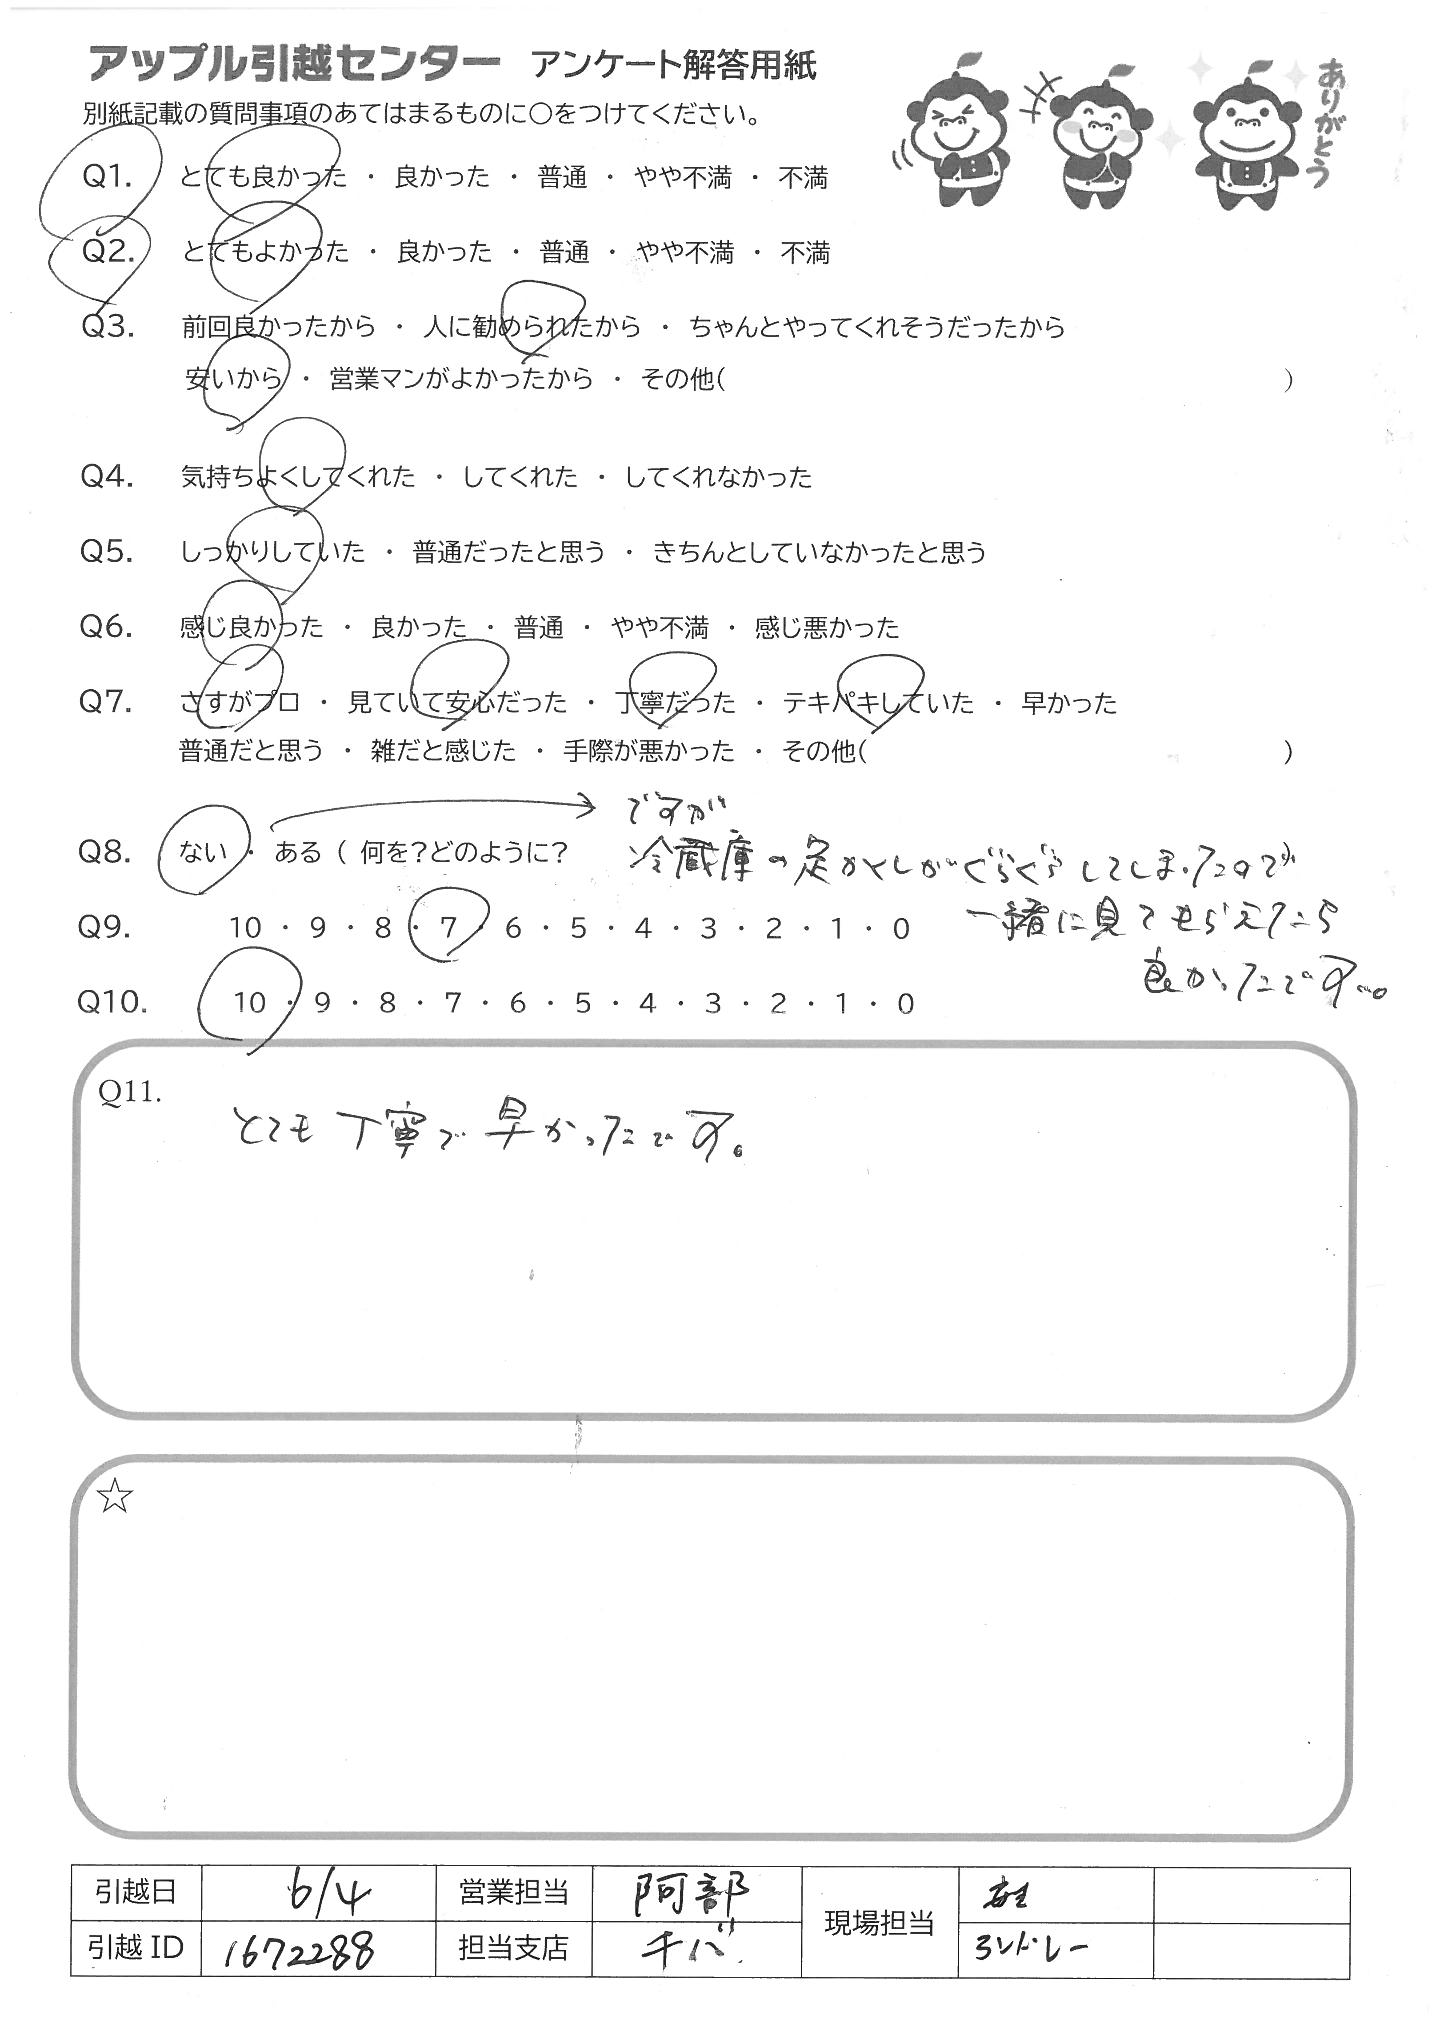 アップル引越センター アンケート解答用紙
別紙記載の質問事項のあてはまるものに○をつけてください。
ありがとう
Q1. とても良かった ・ 良かった ・ 普通 ・ やや不満 ・ 不満
Q2. とてもよかった ・ 良かった ・ 普通 ・ やや不満 ・ 不満
Q3. 前回良かったから ・ 人に勧められたから ・ ちゃんとやってくれそうだったから
安いから ・ 営業マンがよかったから ・ その他( )
Q4. 気持ちよくしてくれた ・ してくれた ・ してくれなかった
Q5. しっかりしていた ・ 普通だったと思う ・ きちんとしていなかったと思う
Q6. 感じ良かった ・ 良かった ・ 普通 ・ やや不満 ・ 感じ悪かった
Q7. さすがプロ ・ 見ていて安心だった ・ 丁寧だった ・ テキパキしていた ・ 早かった
普通だと思う ・ 雑だと感じた ・ 手際が悪かった ・ その他( )
ですが
Q8. ない ・ ある ( 何を?どのように? 冷蔵庫の足かくしがぐらぐらしてしまったので
一緒に見てもらえたら
良かったです。
Q9. 10 ・ 9 ・ 8 ・ 7 ・ 6 ・ 5 ・ 4 ・ 3 ・ 2 ・ 1 ・ 0
Q10. 10 ・ 9 ・ 8 ・ 7 ・ 6 ・ 5 ・ 4 ・ 3 ・ 2 ・ 1 ・ 0
Q11.
とても丁寧で早かったです。
☆
引越日 6/4 営業担当 阿部 現場担当
引越 ID 1672288 担当支店 千バ